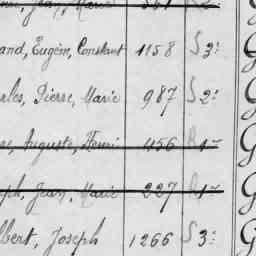 Jean, Marie
and, Eugèn, Constant 1158 S 3: G
rles, Pierre, Marie 987 S 2: G
se, Auguste, Henri 456 R 1re G
eph, Jean, Marie 227 R 1re G
lbert, Joseph 1266 S 3: G